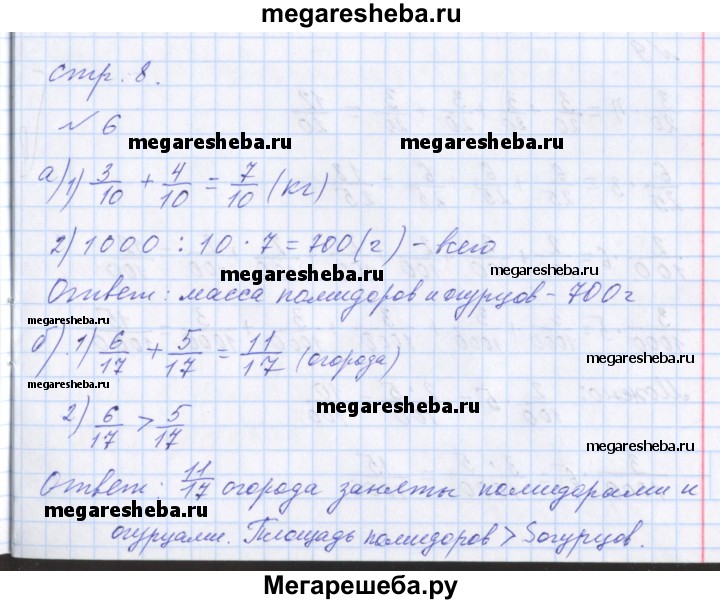 megaresheba.ru
стр. 8.
№ 6
megaresheba.ru
megaresheba.ru
а) 1) 3/10 + 4/10 = 7/10 (кг)
2) 1000 : 10 · 7 = 700 (г) – всего
megaresheba.ru
megaresheba.ru
Ответ: масса помидоров и огурцов – 700 г
megaresheba.ru
б) 1) 6/17 + 5/17 = 11/17 (огорода)
megaresheba.ru
megaresheba.ru
2) 6/17 > 5/17
megaresheba.ru
megaresheba.ru
Ответ: 11/17 огорода заняты помидорами и
megaresheba.ru
огурцами. Площадь помидоров > Sогурцов.
megaresheba.ru
Мегарешеба.ру